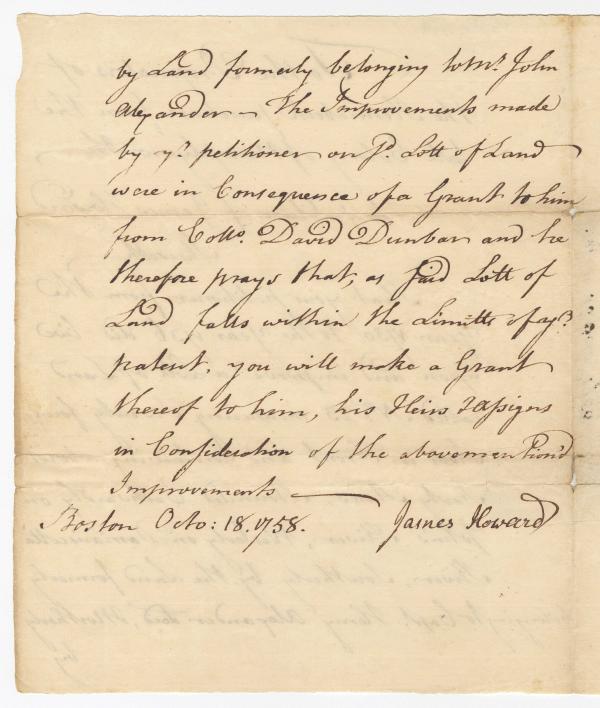 by Land formerly belonging to Mr. John
Alexander — The Improvements made
by yr. petitioner on sd. Lott of Land
were in Consequence of a Grant to him
from Collo. David Dunbar and he
therefore prays that, as said Lott of
Land falls within the Limitts of yr.
patent, you will make a Grant
thereof to him, his Heirs & Assigns
in Consideration of the abovemention'd
Improvements —
Boston Octo: 18. 1758. James Howard